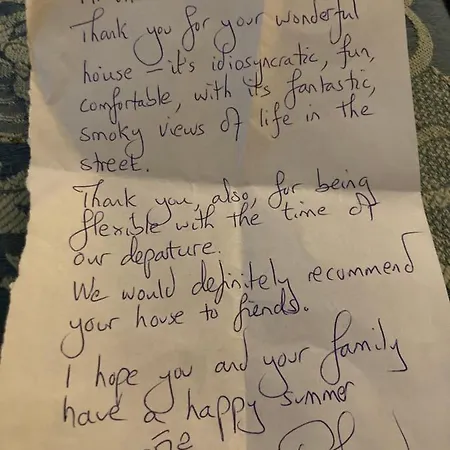 Thank you for your wonderful
house – it's idiosyncratic, fun,
comfortable, with it's fantastic,
smoky views of life in the
street.
Thank you, also, for being
flexible with the time of
our departure.
We would definitely recommend
your house to fiends.
I hope you and your family
have a happy summer